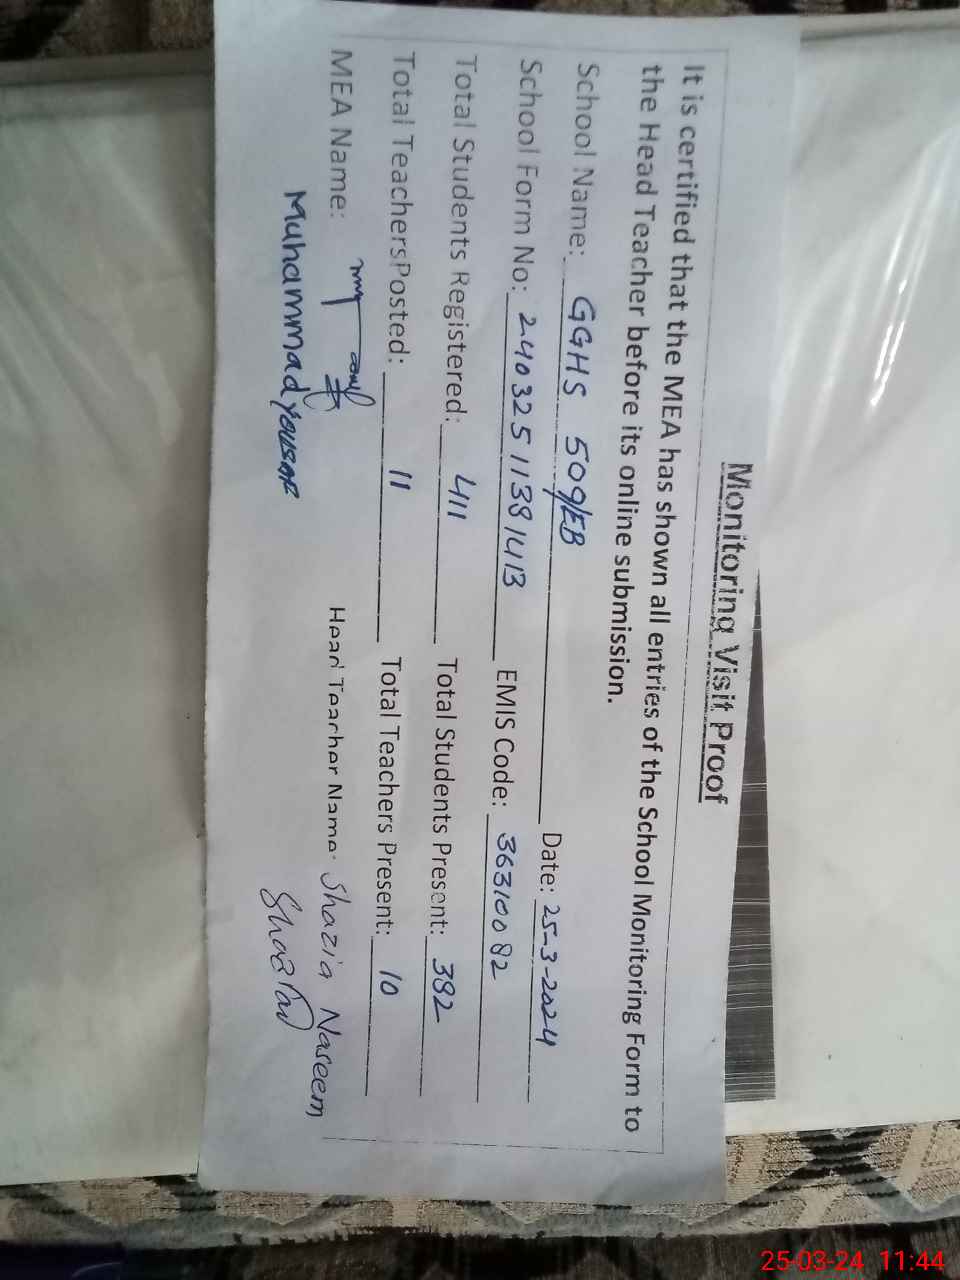 Monitoring Visit Proof
It is certified that the MEA has shown all entries of the School Monitoring Form to
the Head Teacher before its online submission.
School Name: GGHS 509/EB Date: 25-3-2024
School Form No: 24032511381413 EMIS Code: 36310082
Total Students Registered: 411 Total Students Present: 382
Total TeachersPosted: 11 Total Teachers Present: 10
MEA Name: Head Teacher Name: Shazia Naseem
Muhammad Yousaf
25-03-24 11:44